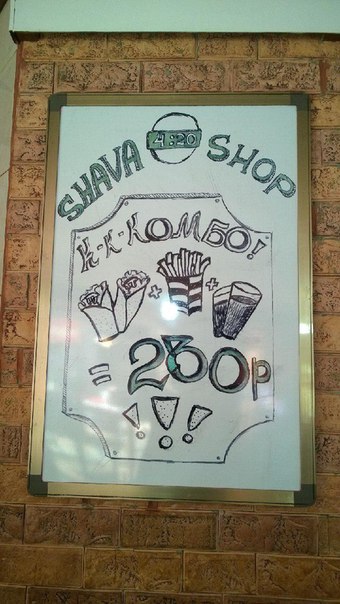 SHAVA 4:20 SHOP
К-К-КОМБО!
+ +
= 280р
!!!